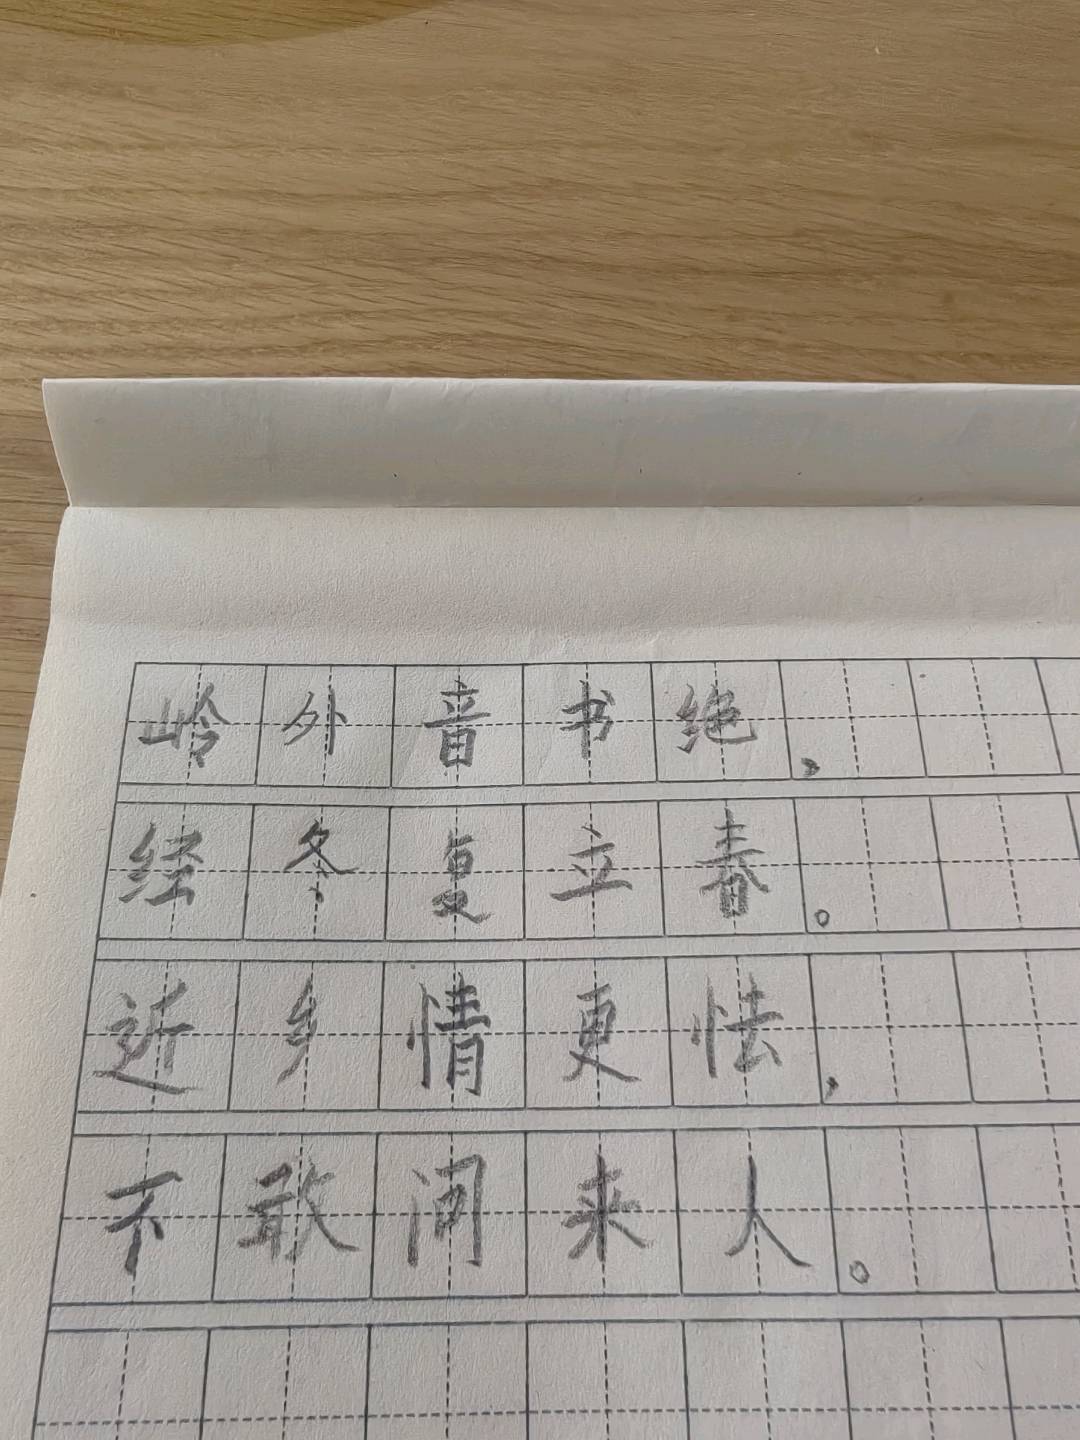 岭外音书绝，
经冬复立春。
近乡情更怯，
不敢问来人。